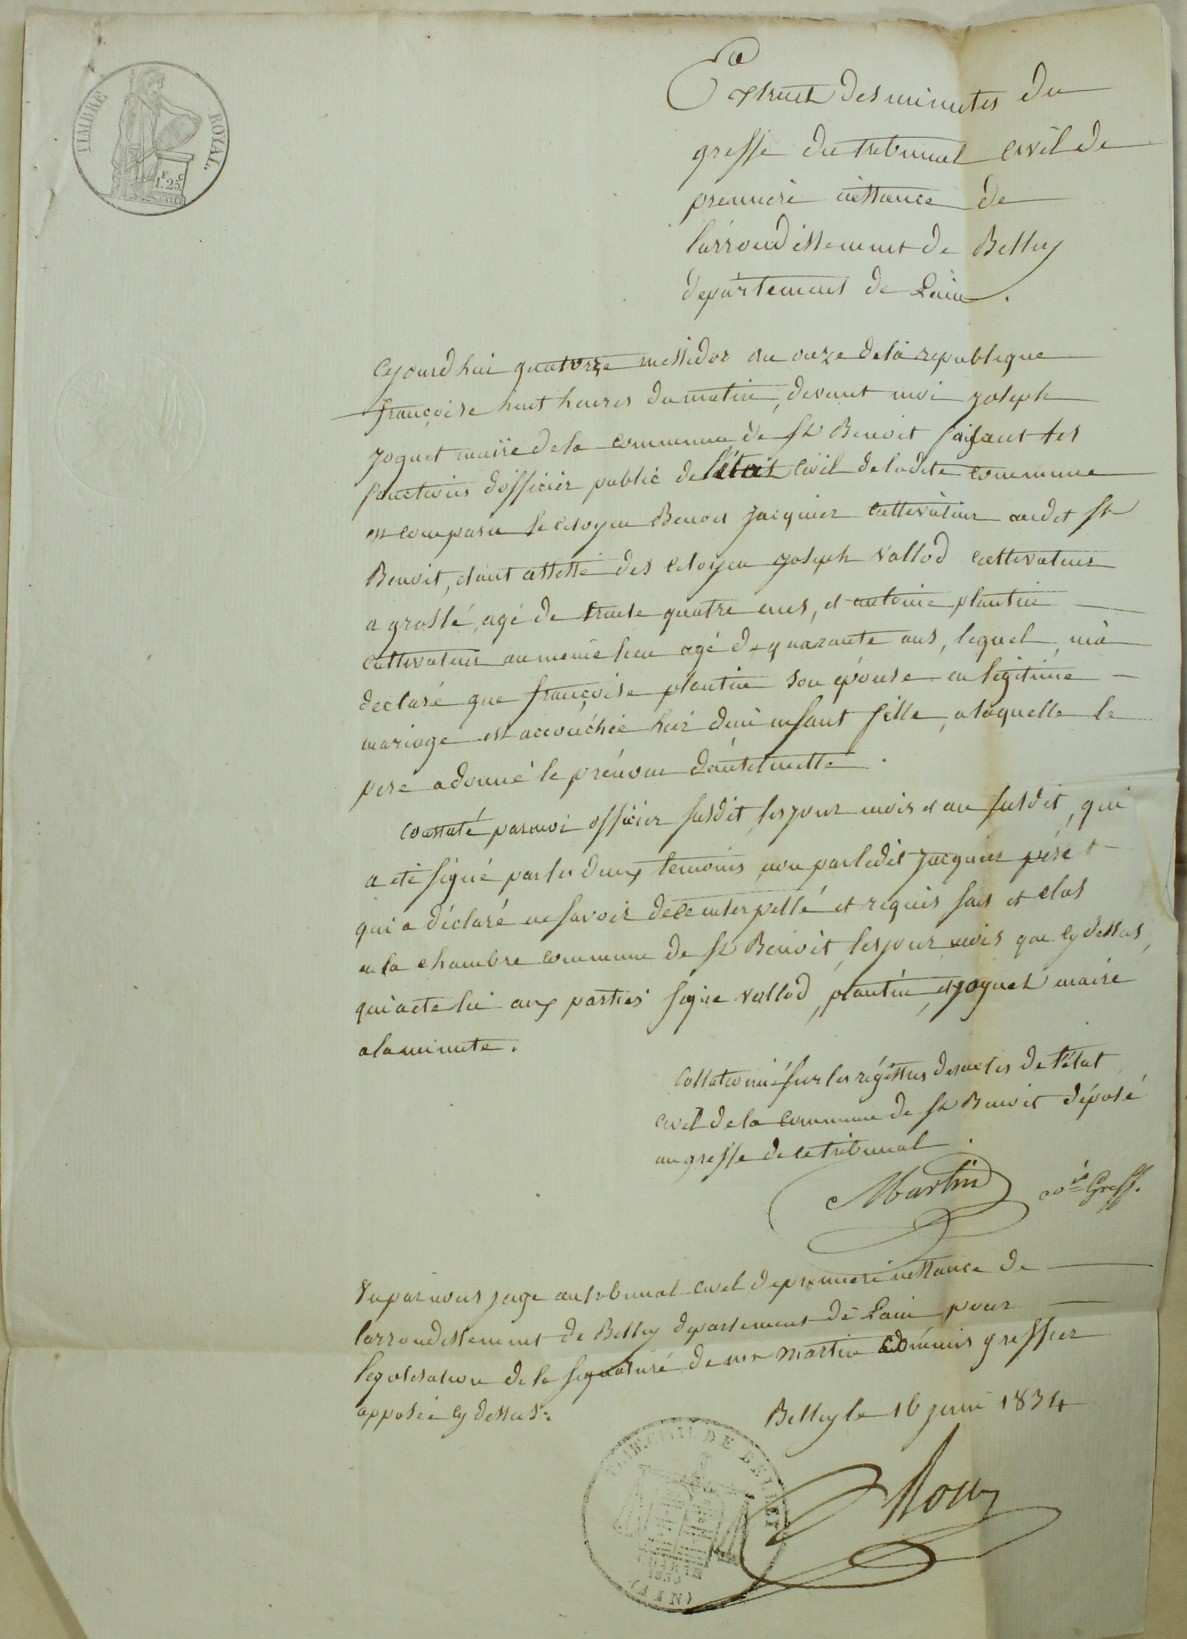 TIMBRE ROYAL.
F. C.
1.25
Extrait des minutes du
greffe du tribunal civil de
premiere instance de
l'arrondissement de Belley
departement de L'ain.
Cejourdhui quatorze messidor an onze de la republique
françoise huit heures du matin, devant moi joseph
joguet maire de la commune de St Benoit faisant les
fonctions d'officier public de l'état civil de ladite commune
est comparu le citoyen Benoit jacquier cultivateur audit St
Benoit, étant assisté des citoyen joseph vallod cultivateur
a groslé, agé de trente quatre ans, et antoine plantin
cultivateur au même lieu agé de quarante ans, lequel m'a
declaré que françoise plantin son épouse en légitime
mariage est accouchée hier d'un enfant fille, a laquelle le
pere a donné le prénom d'antelmette.
Constaté par moi officier susdit, les jour mois et an susdit, qui
a été signé par les deux temoins non par ledit jacquier pére
qui a déclaré ne savoir de ce interpellé et requis fait et clos
en la chambre commune de St Benoit, les jour, mois que cy dessus,
qui acte lu aux parties signe vallod, plantin, et joguet maire
a la minute.
Collationné sur les régistres des actes de l'état
civil de la commune de St Benoit déposé
au greffe de ce tribunal.
Martin co.is Greff.
Vu par nous juge au tribunal civil de premiere instance de
l'arrondissement de Belley departement de L'ain pour
légalisation de la signature de mr martin commis greffier
apposée cy dessus.
Belley le 16 juin 1834
DE BELLEY
(AIN)